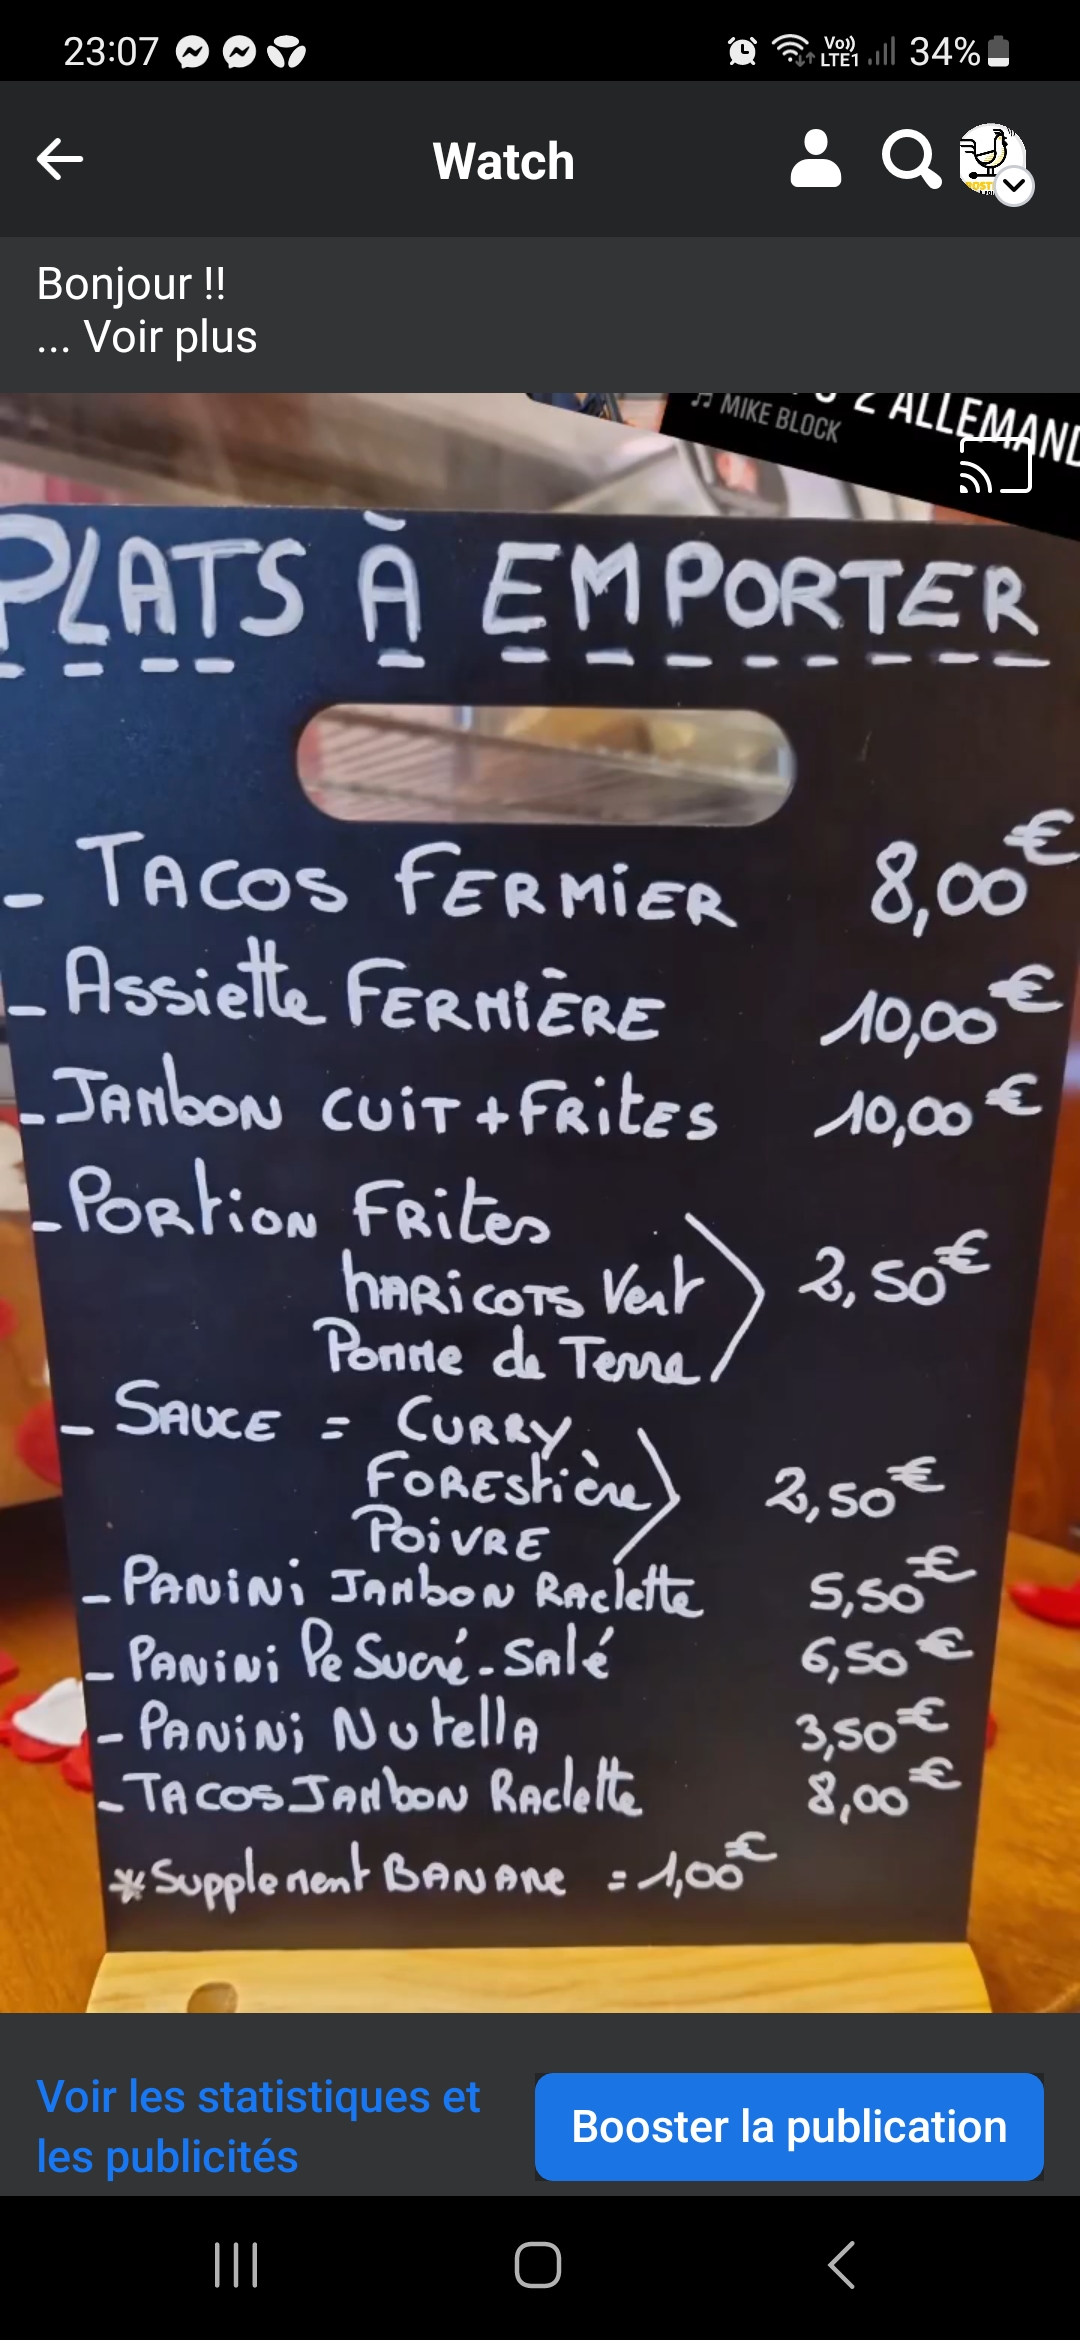 23:07 Vo)) LTE1 34%
Watch
Bonjour !!
... Voir plus
2 ALLEMAND
MIKE BLOCK
PLATS À EMPORTER
- TACOS FERMIER 8,00€
- Assiette FERMIÈRE 10,00€
- JAMBON CUIT + FRITES 10,00€
- PORTION FRITES
HARICOTS Vert 2,50€
Pomme de Terre
- SAUCE = CURRY
FORESTIÈRE 2,50€
POIVRE
- PANINI JAMBON RAclette 5,50€
- PANINI Pe Sucré-Salé 6,50€
- PANINI NutellA 3,50€
- TACOS JAMBON RAclette 8,00€
*Supplement BANANE = 1,00€
Voir les statistiques et
les publicités
Booster la publication